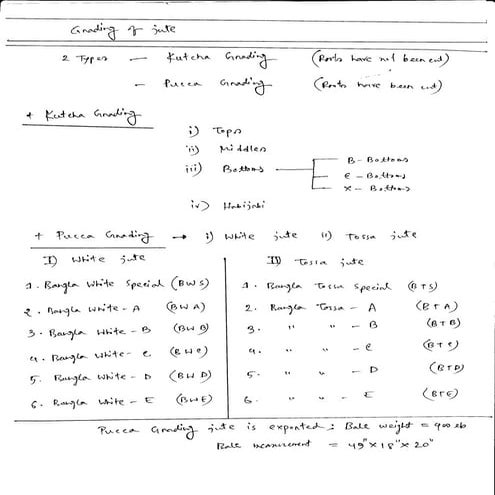 Grading of jute
2 Types — Kutcha Grading (Roots have not been cut)
— Pucca Grading (Roots have been cut)
+ Kutcha Grading
i) Tops
ii) Middles
iii) Bottoms
B - Bottoms
C - Bottoms
X - Bottoms
iv) Habijabi
+ Pucca Grading → i) White jute ii) Tossa jute
I) White jute
1. Bangla White Special (BWS)
2. Bangla White - A (BWA)
3. Bangla White - B (BWB)
4. Bangla White - C (BWC)
5. Bangla White - D (BWD)
6. Bangla White - E (BWE)
II) Tossa jute
1. Bangla Tossa Special (BTS)
2. Bangla Tossa - A (BTA)
3. " " - B (BTB)
4. " " - C (BTC)
5. " " - D (BTD)
6. " " - E (BTE)
Pucca Grading jute is exported; Bale weight = 400 lb
Bale measurement = 49" X 18" X 20"